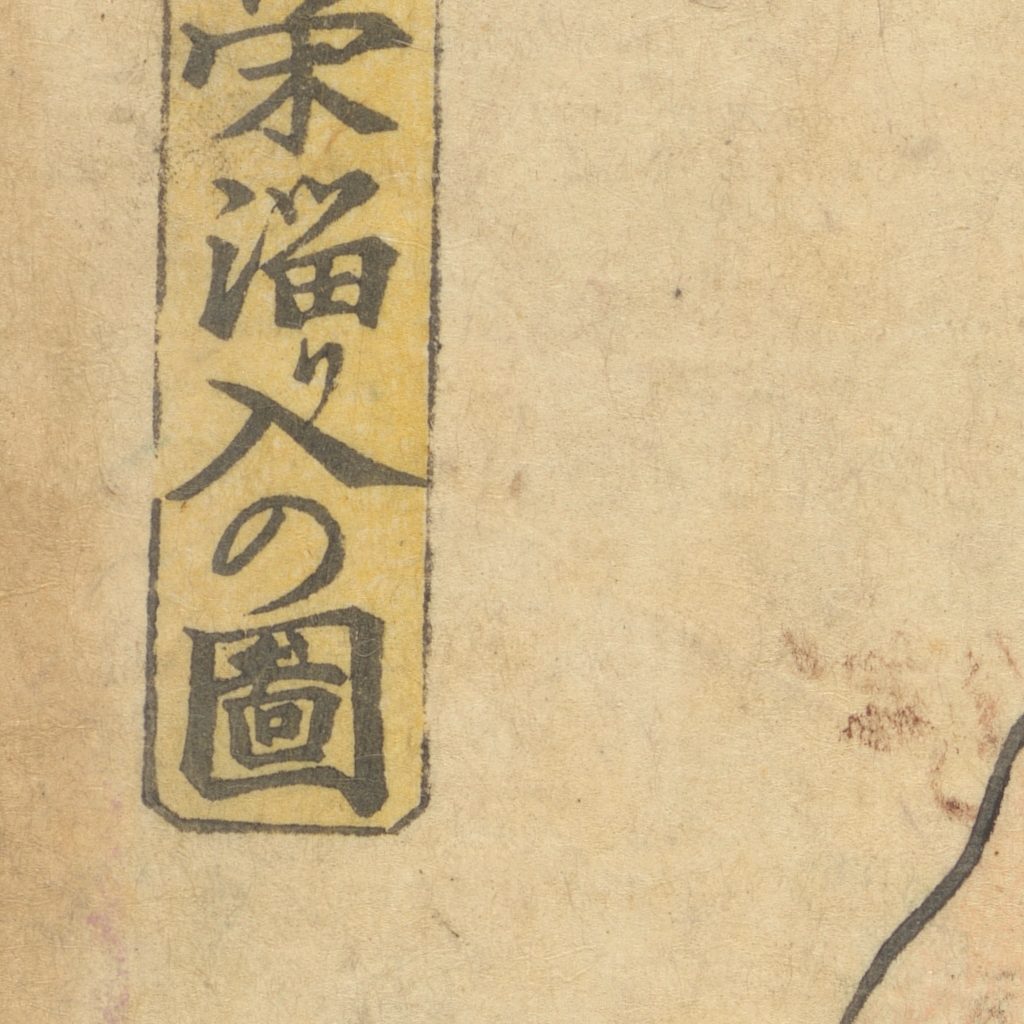 栄溜り入の圖